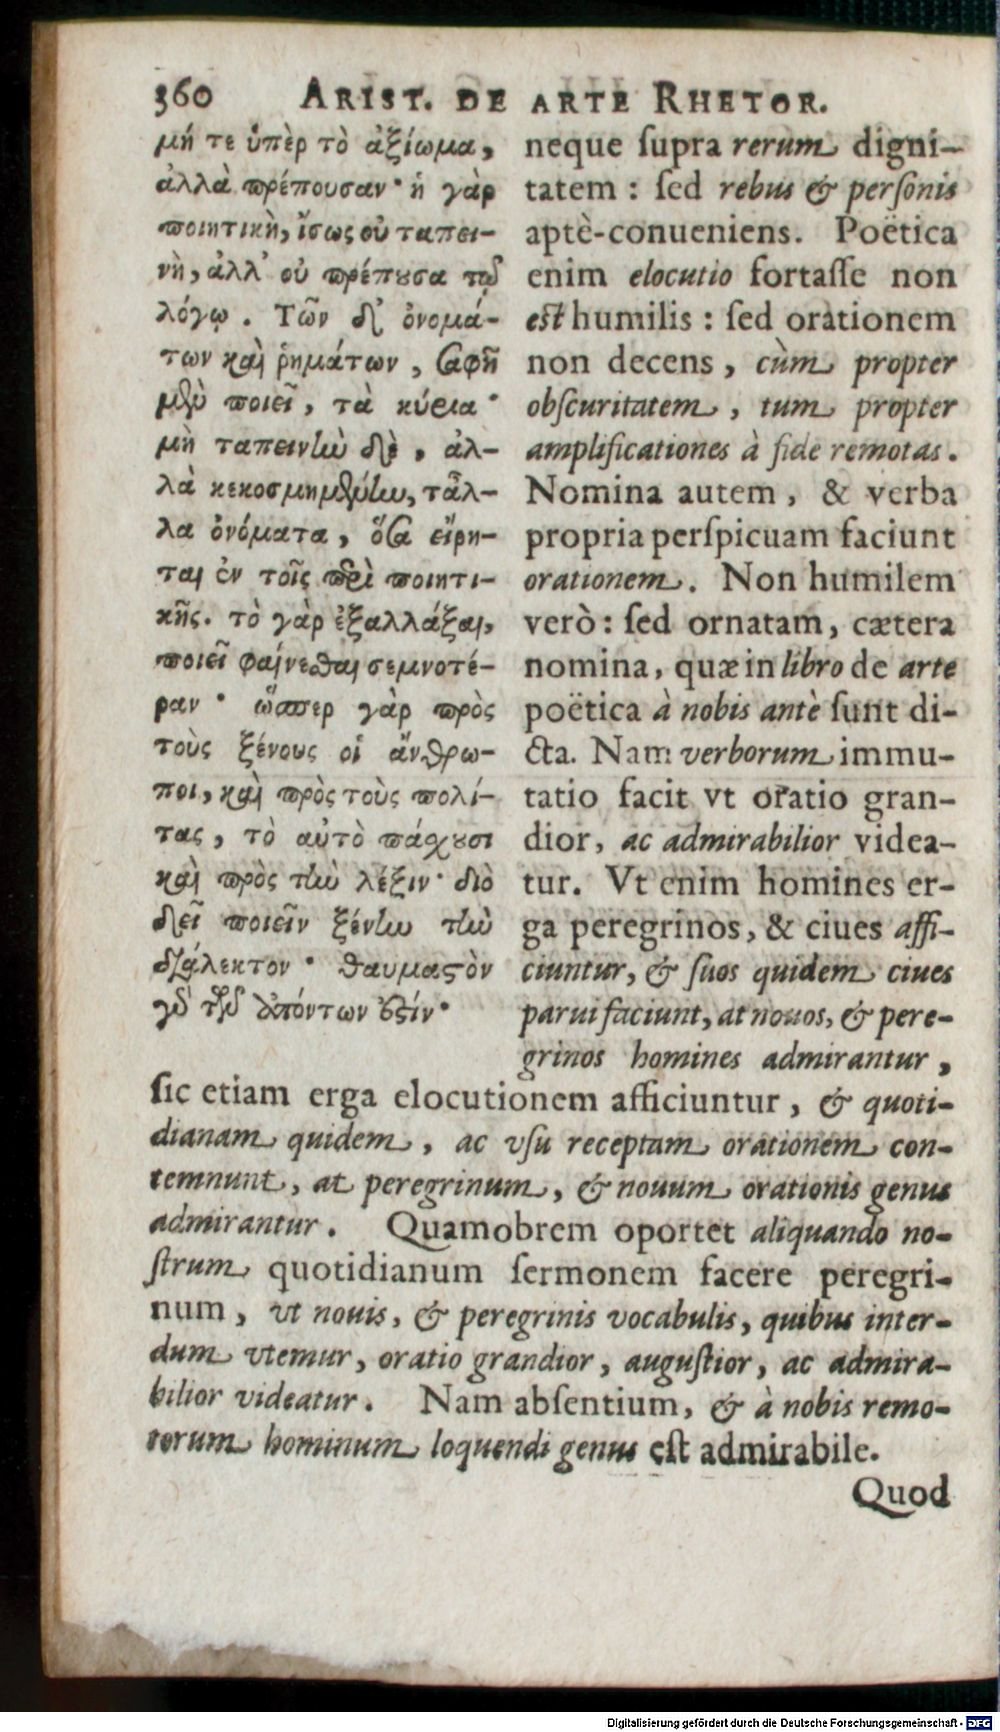 360 ARIST. DE ARTE RHETOR.
μή τε ὑπὲρ τὸ ἀξίωμα,
ἀλλὰ πρέπουσαν· ἡ γὰρ
ποιητικὴ, ἴσως οὐ ταπει-
νὴ, ἀλλ' οὐ πρέπουσα τῷ
λόγῳ. Τῶν δ' ὀνομά-
των καὶ ῥημάτων, σαφῆ
μὲν ποιεῖ, τὰ κύρια·
μὴ ταπεινὴν δὲ, ἀλ-
λὰ κεκοσμημένην, τἆλ-
λα ὀνόματα, ὅσα εἴρη-
ται ἐν τοῖς περὶ ποιητι-
κῆς. τὸ γὰρ ἐξαλλάξαι,
ποιεῖ φαίνεσθαι σεμνοτέ-
ραν· ὥσπερ γὰρ πρὸς
τοὺς ξένους οἱ ἄνθρω-
ποι, καὶ πρὸς τοὺς πολί-
τας, τὸ αὐτὸ πάσχουσι
καὶ πρὸς τὴν λέξιν· διὸ
δεῖ ποιεῖν ξένην τὴν
διάλεκτον· θαυμαστὸν
γὰρ τῶν ἀπόντων ἐστίν·
neque ſupra rerum digni-
tatem : ſed rebus & perſonis
aptè-conueniens. Poëtica
enim elocutio fortaſſe non
est humilis : ſed orationem
non decens, cùm propter
obſcuritatem, tum propter
amplificationes à fide remotas.
Nomina autem, & verba
propria perſpicuam faciunt
orationem. Non humilem
verò : ſed ornatam, cætera
nomina, quæ in libro de arte
poëtica à nobis antè ſunt di-
cta. Nam verborum immu-
tatio facit vt oratio gran-
dior, ac admirabilior videa-
tur. Vt enim homines er-
ga peregrinos, & ciues affi-
ciuntur, & ſuos quidem ciues
parui faciunt, at nouos, & pere-
grinos homines admirantur,
ſic etiam erga elocutionem afficiuntur, & quoti-
dianam quidem, ac vſu receptam orationem con-
temnunt, at peregrinum, & nouum orationis genus
admirantur. Quamobrem oportet aliquando no-
ſtrum quotidianum ſermonem facere peregri-
num, vt nouis, & peregrinis vocabulis, quibus inter-
dum vtemur, oratio grandior, auguſtior, ac admira-
bilior videatur. Nam abſentium, & à nobis remo-
torum hominum loquendi genus eſt admirabile.
Quod
Digitalisierung gefördert durch die Deutsche Forschungsgemeinschaft - DFG